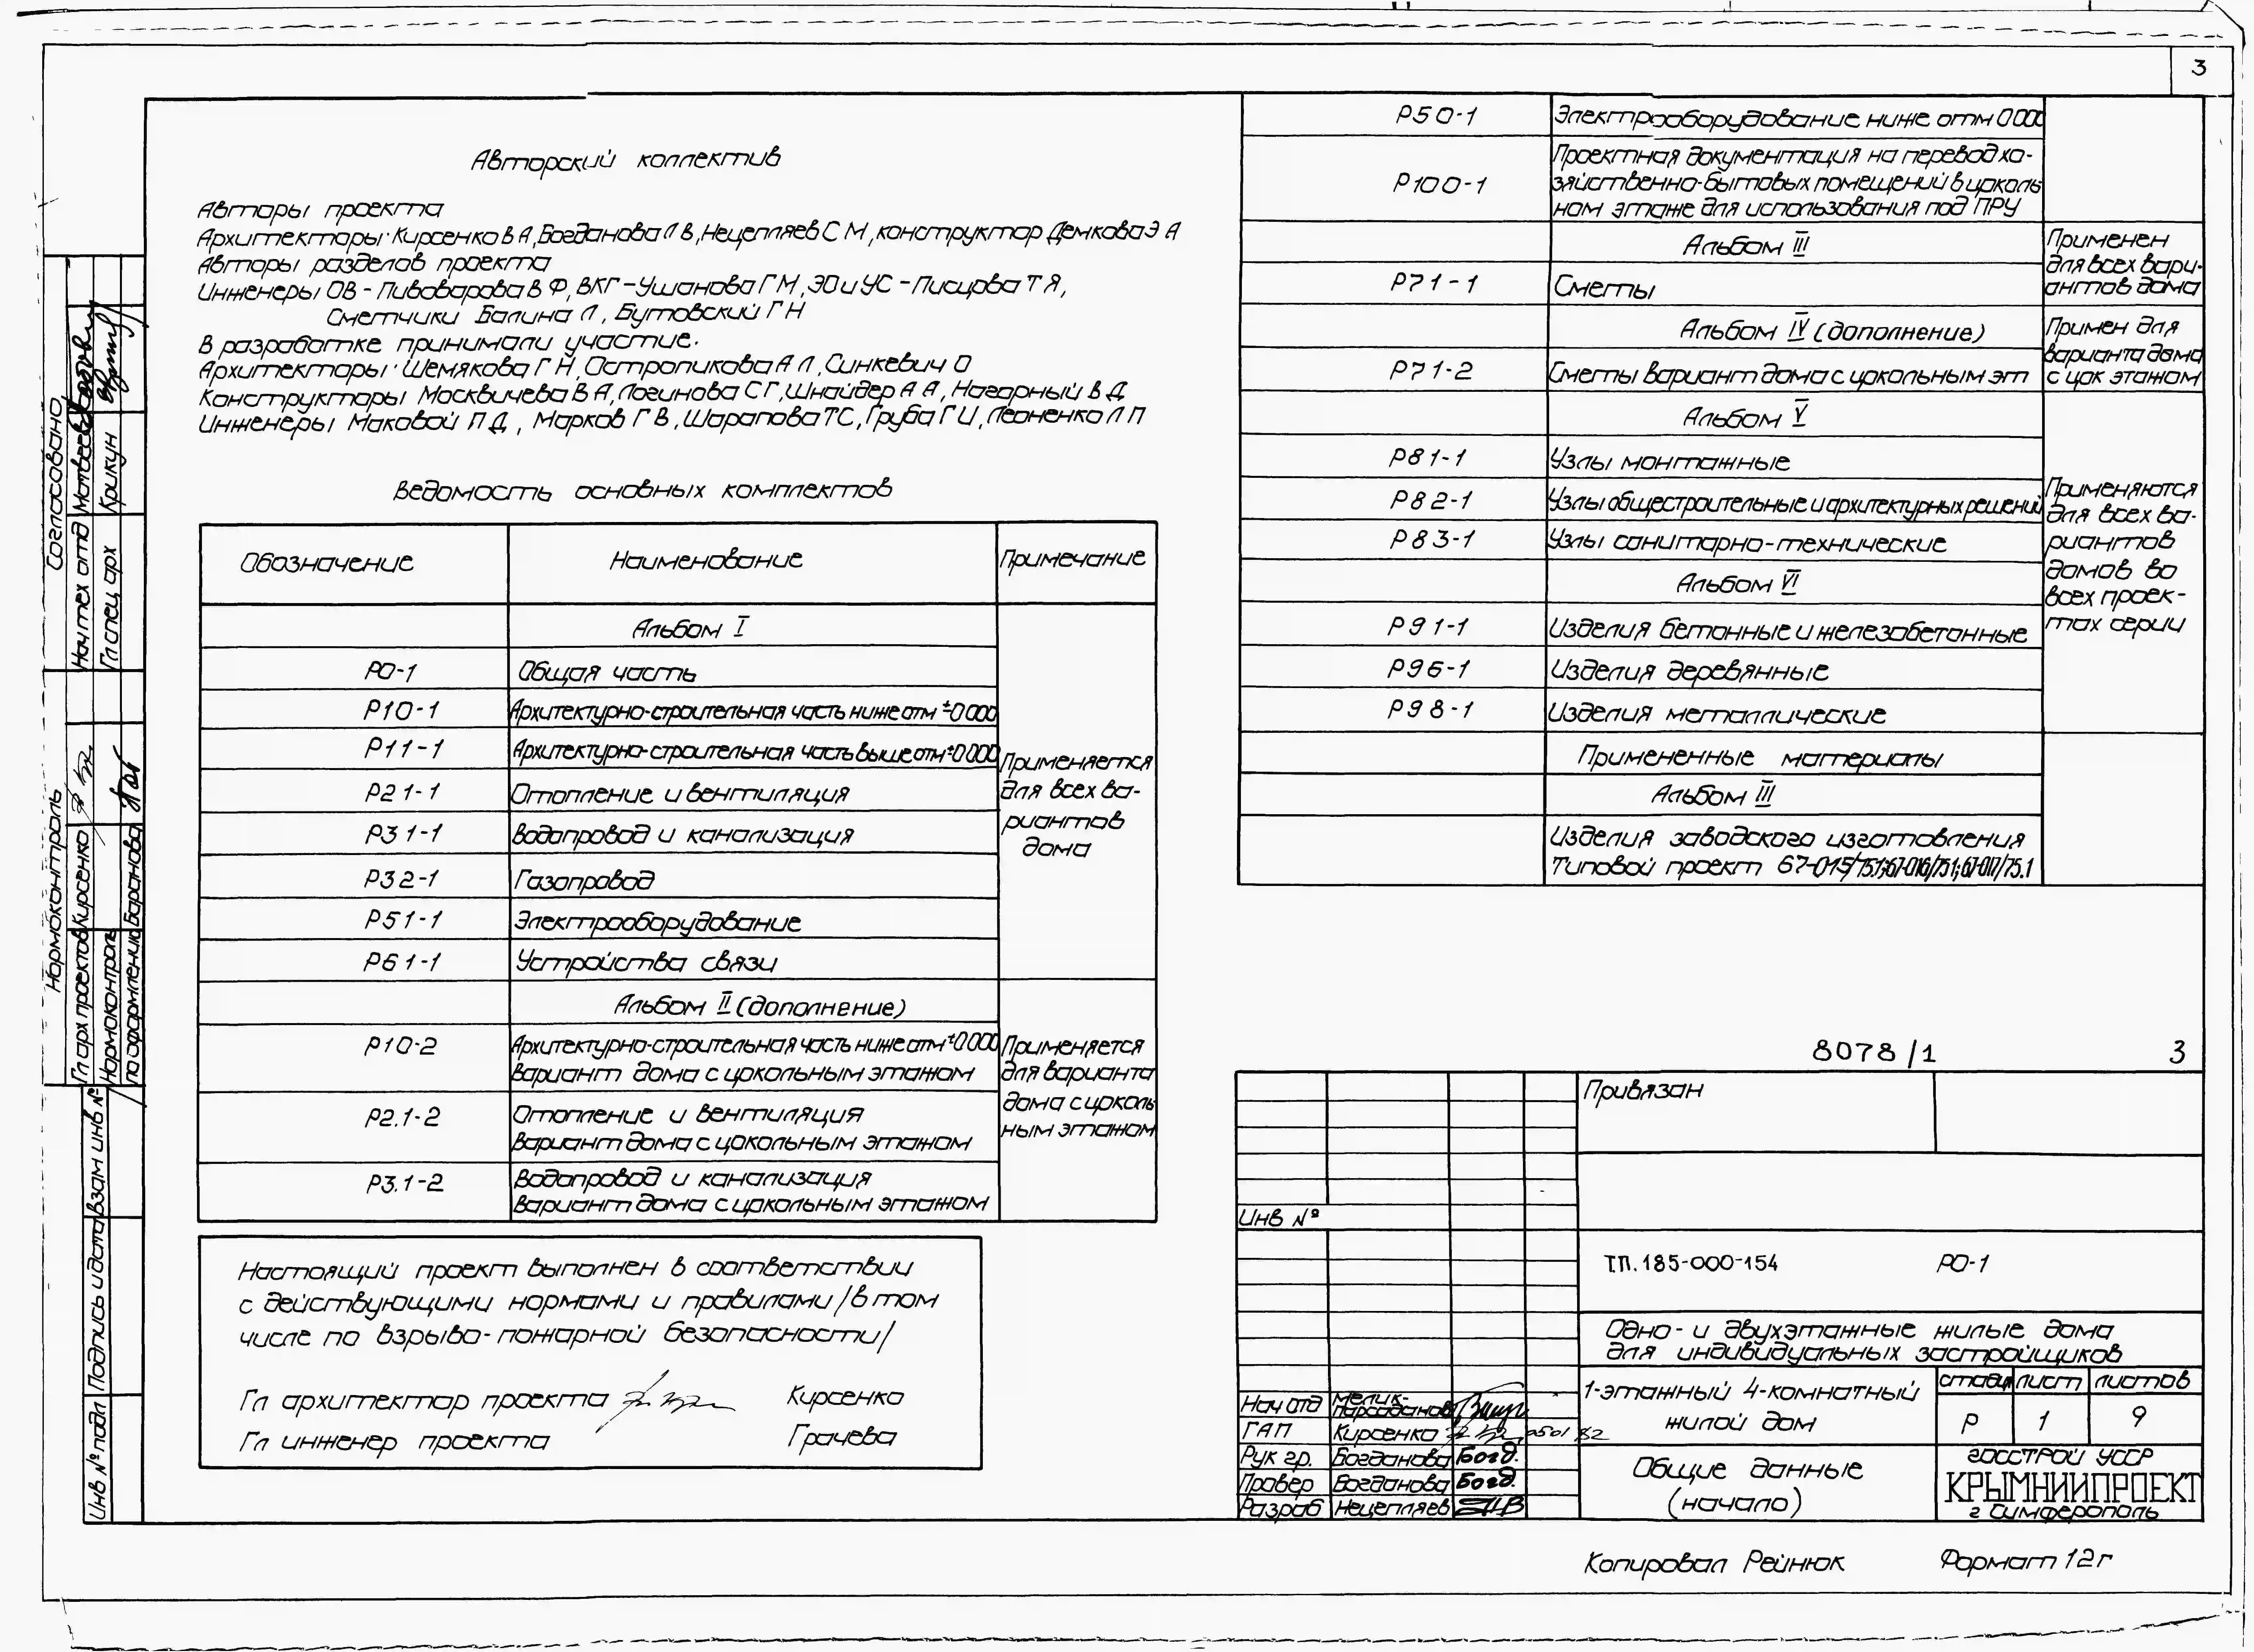 3
Авторский коллектив
Авторы проекта
Архитекторы: Кирсенко В А, Богданова Л В, Нецепляев С М, конструктор Демкова Э А
Авторы разделов проекта
Инженеры ОВ - Пивоварова В Ф, ВКГ - Ушанова Г М, ЭО и УС - Писцова Т Я,
Сметчики Балина Л, Бутовский Г Н
В разработке принимали участие:
Архитекторы: Шемякова Г Н, Остропикова А Л, Синкевич О
Конструкторы Москвичева В А, Логинова С Г, Шнайдер А А, Нагорный В Д
Инженеры Маковой П Д, Марков Г В, Шарапова Т С, Груба Г И, Леоненко Л П
Ведомость основных комплектов
Обозначение Наименование Примечание
Альбом I
РО-1 Общая часть
Р10-1 Архитектурно-строительная часть ниже отм ±0 000
Р11-1 Архитектурно-строительная часть выше отм ±0 000
Р21-1 Отопление и вентиляция
Р31-1 Водопровод и канализация
Р32-1 Газопровод
Р51-1 Электрооборудование
Р61-1 Устройства связи
Применяется
для всех ва-
риантов
дома
Альбом II (дополнение)
Р10-2 Архитектурно-строительная часть ниже отм ±0 000
вариант дома с цокольным этажом
Р2.1-2 Отопление и вентиляция
вариант дома с цокольным этажом
Р3.1-2 Водопровод и канализация
вариант дома с цокольным этажом
Применяется
для варианта
дома с цоколь
ным этажом
Настоящий проект выполнен в соответствии
с действующими нормами и правилами /в том
числе по взрыво-пожарной безопасности/
Гл архитектор проекта Кирсенко
Гл инженер проекта Грачева
Р50-1 Электрооборудование ниже отм 0 000
Р100-1 Проектная документация на перевод хо-
зяйственно-бытовых помещений в цоколь
ном этаже для использования под ПРУ
Альбом III
Р71-1 Сметы
Применен
для всех вари-
антов дома
Альбом IV (дополнение)
Р71-2 Сметы вариант дома с цокольным эт
Примен для
варианта дома
с цок этажом
Альбом V
Р81-1 Узлы монтажные
Р82-1 Узлы общестроительные и архитектурных решений
Р83-1 Узлы санитарно-технические
Альбом VI
Р91-1 Изделия бетонные и железобетонные
Р96-1 Изделия деревянные
Р98-1 Изделия металлические
Применяются
для всех ва-
риантов
домов во
всех проек-
тах серии
Примененные материалы
Альбом III
Изделия заводского изготовления
Типовой проект 67-015/75.1; 67-016/75.1; 67-017/75.1
8078/1 3
Привязан
Инв №
Т.П. 185-000-154 РО-1
Одно- и двухэтажные жилые дома
для индивидуальных застройщиков
1-этажный 4-комнатный
жилой дом
стадия лист листов
Р 1 9
Общие данные
(начало)
Госстрой УССР
КРЫМНИИПРОЕКТ
г Симферополь
Нач отд Мелик-
парсаданов
ГАП Кирсенко
Рук гр. Богданова Богд.
Провер Богданова Богд.
Разраб Нецепляев
Копировал Рейнюк Формат 12г
Согласовано
Нач тех отд Матвеев
Гл спец арх Крикун
Нормоконтроль
Гл арх проектов Кирсенко
Нормоконтроль
по оформлению Баранова
Взам инв №
Подпись и дата
Инв № подл